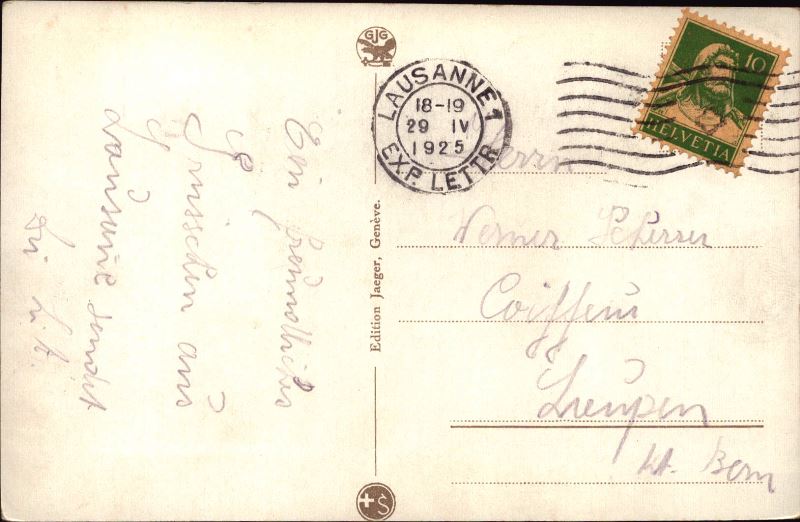 Ein freundliches
Grüsschen aus
Lausanne sendet
Dir
GJG
Edition Jaeger, Genève.
LAUSANNE 1
18-19
29 IV
1925
EXP. LETTR
10
HELVETIA
Herrn
Werner Scherrer
Coiffeur
Laupen
Kt. Bern
S